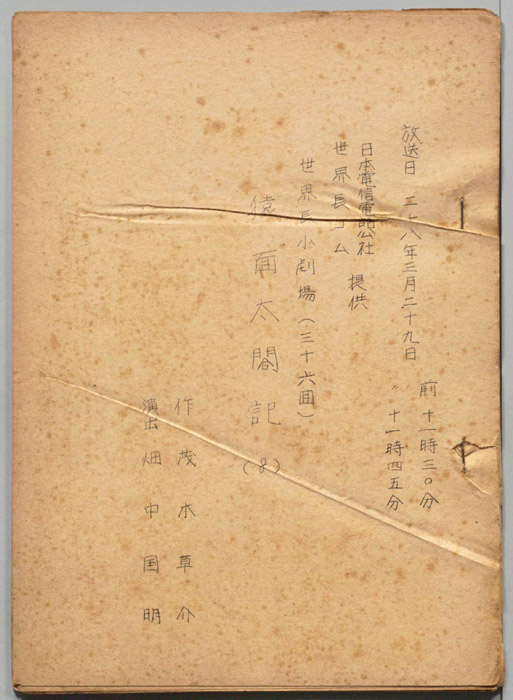 放送日 三十八年三月二十九日
前十一時三〇分
〃十一時四五分
日本電信電話公社
世界長ゴム 提供
世界長小劇場(三十六回)
猿面太閤記(8)
作 茂木草介
演出 畑中国明